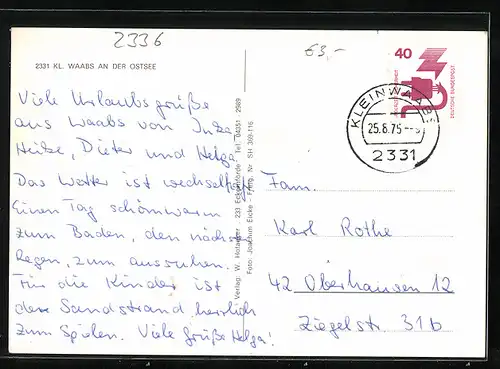 2336
€3,-
2331 KL. WAABS AN DER OSTSEE
Viele Urlaubsgrüße
aus Waabs von Inka
Heike, Dieter und Helga.
Das Wetter ist wechselhaft
Einen Tag schön warm
zum Baden, den nächsten
Regen, zum ausruhen.
Für die Kinder ist
der Sandstrand herrlich
zum Spielen. Viele Grüße Helga!
Verlag W. 233 Eckernförde Tel. 04351
Foto: Joachim Eicke Foto. Nr. SH 369-116
40
DEUTSCHE BUNDESPOST
KLEINWAABS
25.8.75
2331
Fam.
Karl Rothe
42 Oberhausen 12
Ziegelstr. 31b